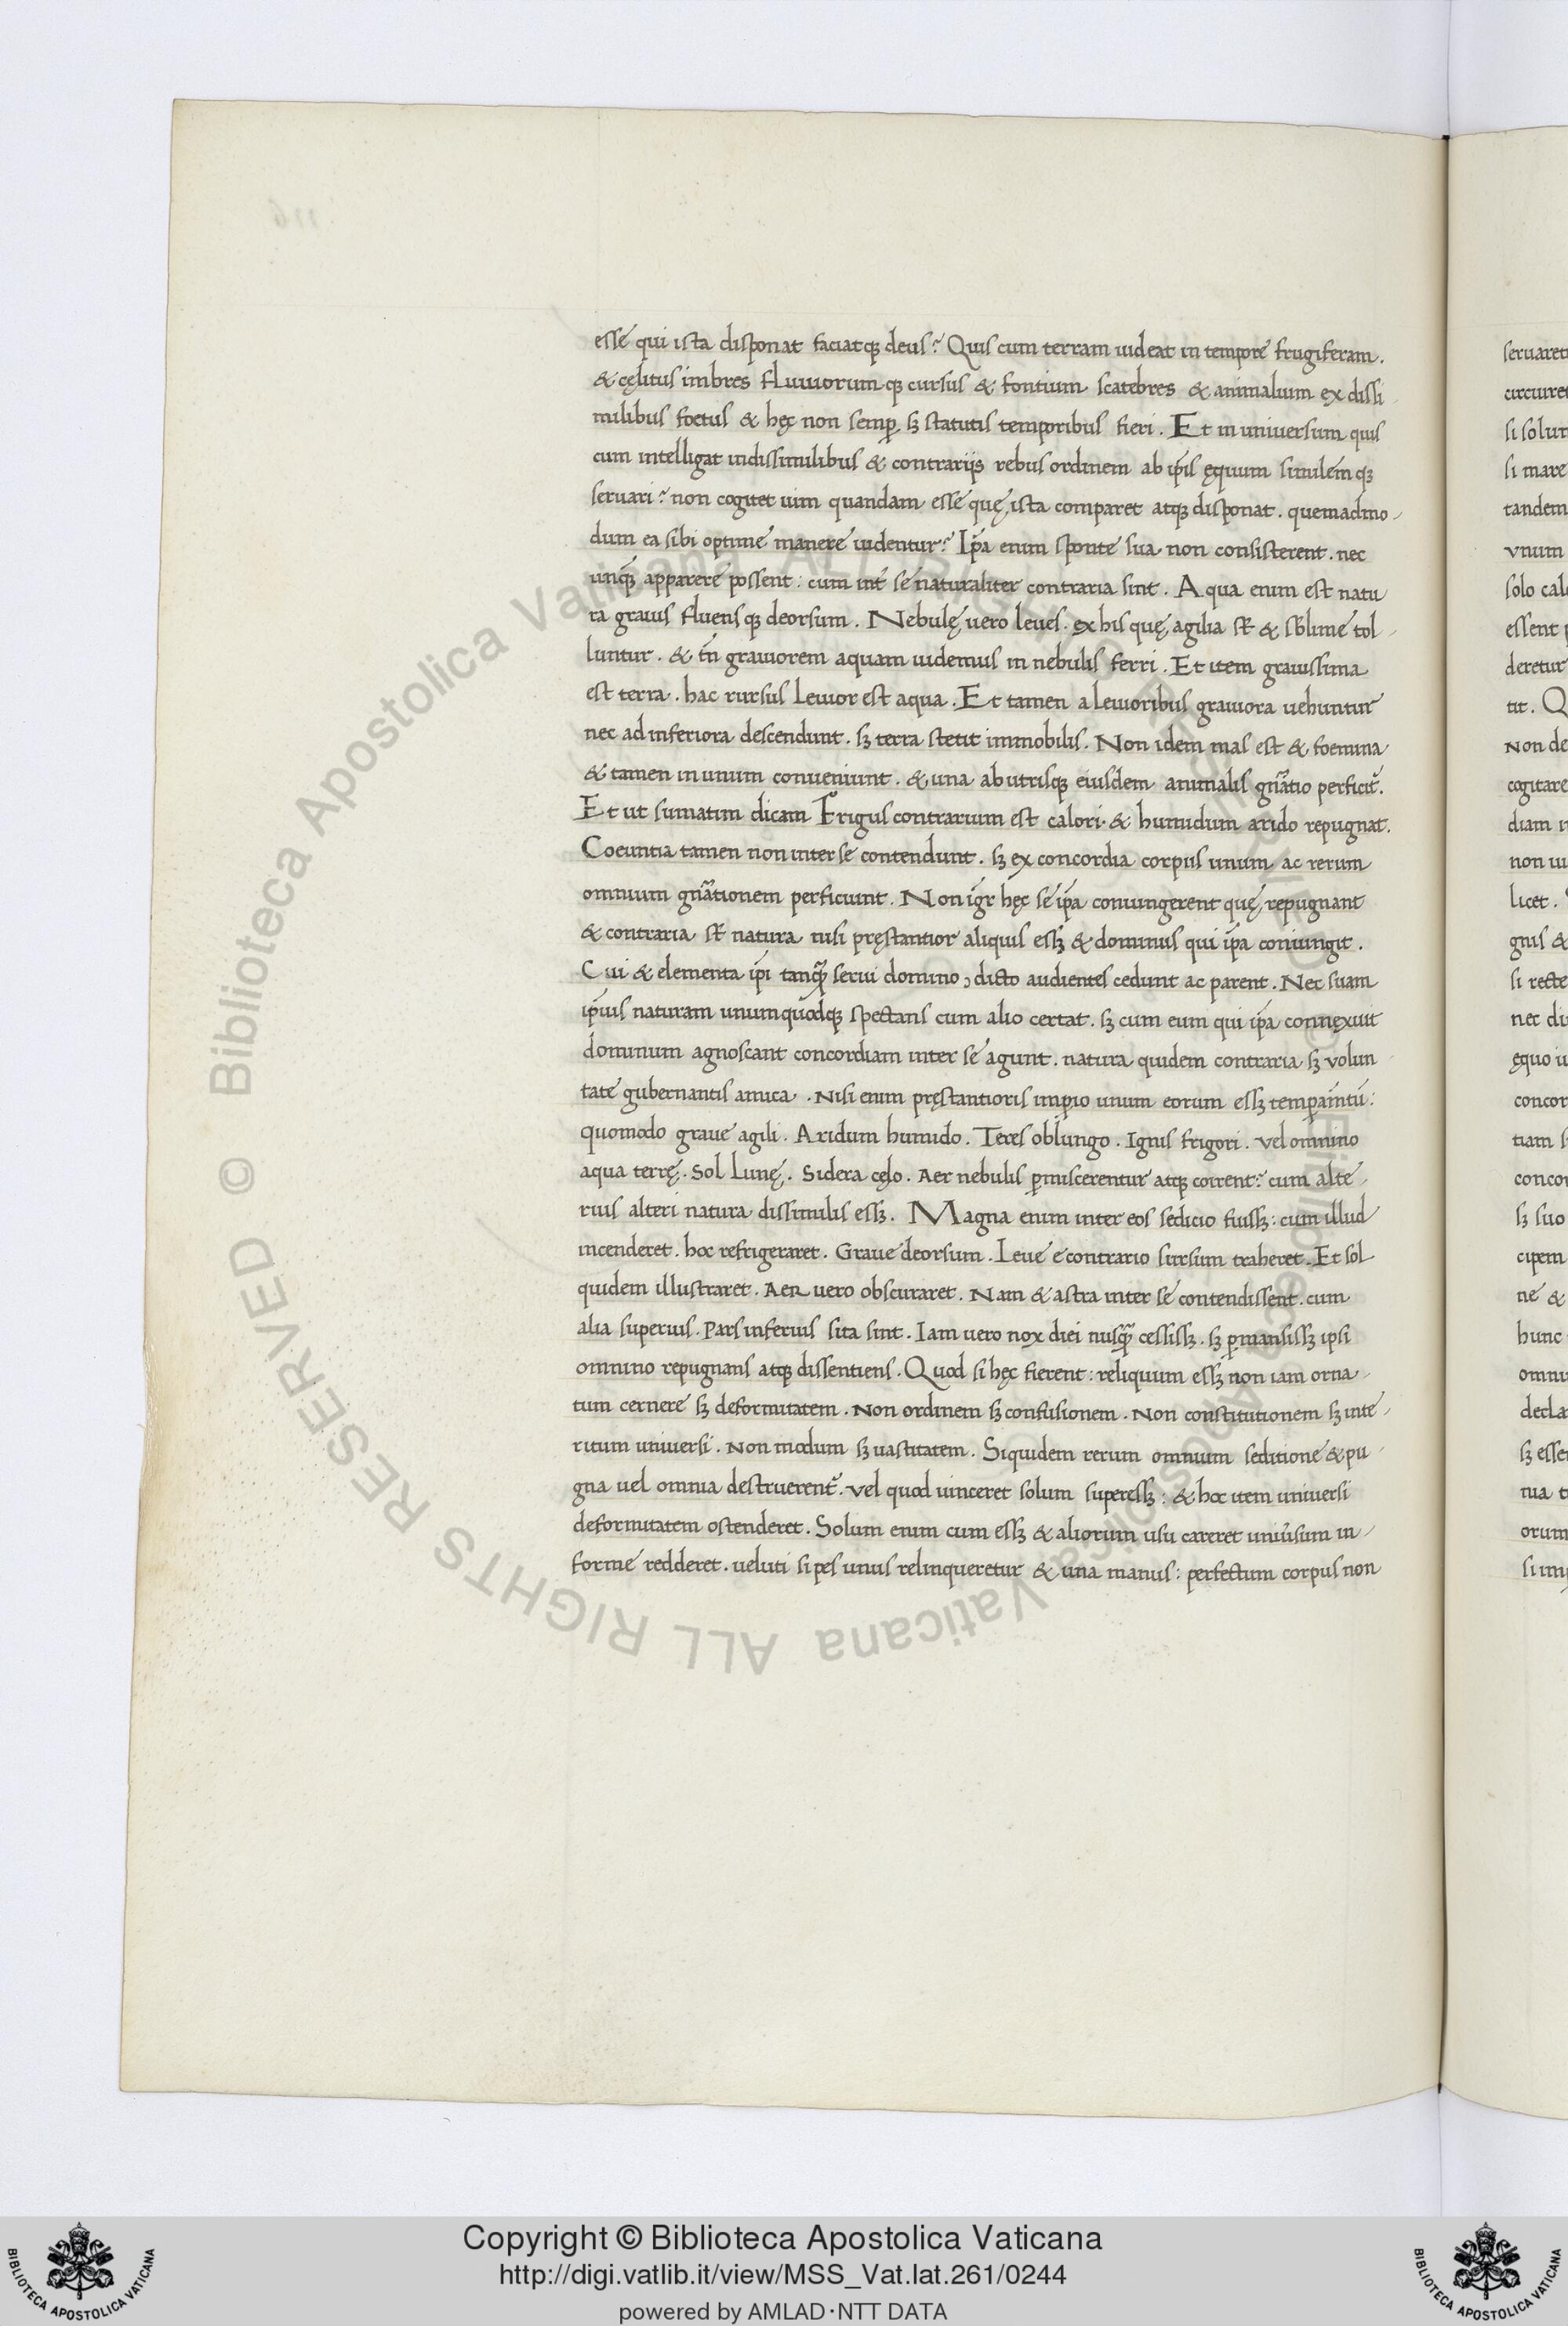 esse qui ista disponat faciatqꝫ deus? Quis cum terram uideat in tempore frugiferam.
& cęlitus imbres fluuiorumqꝫ cursus & fontium scatebres & animalium ex dissi
milibus foetus & hęc non semꝑ sꝫ statutis temporibus fieri. Et in uniuersum quis
cum intelligat indissimilibus & contrarijs rebus ordinem ab ip̄is ęquum similemqꝫ
seruari? non cogitet uim quandam esse quę ista comparet atqꝫ disponat. quemadmo-
dum ea sibi optime manere uidentur? Ip̄a enim sponte sua non consisterent. nec
unqꝫ apparere possent: cum int̄ se naturaliter contraria sint. Aqua enim est natu
ra grauis fluensqꝫ deorsum. Nebulę uero leues. ex his quę agilia st̄ & sb̄lime tol-
luntur. & tn̄ grauiorem aquam uidemus in nebulis ferri. Et item grauissima
est terra. hac rursus leuior est aqua. Et tamen a leuioribus grauiora uehuntur
nec ad inferiora descendunt. sꝫ terra stetit immobilis. Non idem mas est & foemina
& tamen in unum conueniunt. & una ab utrisqꝫ eiusdem animalis gn̄atio perficit̄.
Et ut sumatim dicam Frigus contrarium est calori. & humidum arido repugnat.
Coeuntia tamen non inter se contendunt. sꝫ ex concordia corpus unum ac rerum
omnium gn̄ationem perficiunt. Non igr̄ hęc se ip̄a coniungerent quę repugnant
& contraria st̄ natura nisi pręstantior aliquis essꝫ & dominus qui ip̄a coniungit.
Cui & elementa ip̄i tanqꝫ serui domino dicto audientes cedunt ac parent. Nec suam
ip̄ius naturam unumquodqꝫ spectans cum alio certat. sꝫ cum eum qui ip̄a connexuit
dominum agnoscant concordiam inter se agunt. natura quidem contraria sꝫ volun-
tate gubernantis amica. Nisi enim pręstantioris imꝑio unum eorum essꝫ temꝑam̄tū:
quomodo graue agili. Aridum humido. Teres oblungo. Ignis frigori. vel omnino
aqua terrę. Sol Lunę. Sidera cęlo. Aer nebulis ꝑmiscerentur atqꝫ coirent? cum alte-
rius alteri natura dissimilis essꝫ. Magna enim inter eos sedicio fuissꝫ: cum illud
incenderet. hoc refrigeraret. Graue deorsum. Leue e contrario sursum traheret. Et sol
quidem illustraret. Aer uero obscuraret. Nam & astra inter se contendissent. cum
alia superius. Pars inferius sita sint. Iam uero nox diei nusqꝫ cessissꝫ. sꝫ ꝑmansissꝫ ipsi
omnino repugnans atqꝫ dissentiens. Quod si hęc fierent: reliquum essꝫ non iam orna-
tum cernere sꝫ deformitatem. Non ordinem sꝫ confusionem. Non constitutionem sꝫ inte-
ritum uniuersi. Non modum sꝫ uastitatem. Siquidem rerum omnium seditione & pu-
gna uel omnia destruerent̄. vel quod uinceret solum superessꝫ: & hoc item uniuersi
deformitatem ostenderet. Solum enim cum essꝫ & aliorum usu careret uniu̅sum in-
forme redderet. ueluti si pes unus relinqueretur & una manus: perfectum corpus non
seruaret
circuiret
si solum
si mare
tandem
vnum
solo cal
essent
deretur
tit. Q
Non de
cogitare
diam
licet.
gnis &
si recte
nec di
ęquo
concor
tiam
conco
sꝫ suo
cipem
ne &
hunc
omni
decla
sꝫ esse
orum
© Biblioteca Apostolica Vaticana ALL RIGHTS RESERVED
Copyright © Biblioteca Apostolica Vaticana
http://digi.vatlib.it/view/MSS_Vat.lat.261/0244
powered by AMLAD·NTT DATA
BIBLIOTECA APOSTOLICA VATICANA
BIBLIOTECA APOSTOLICA VATICANA